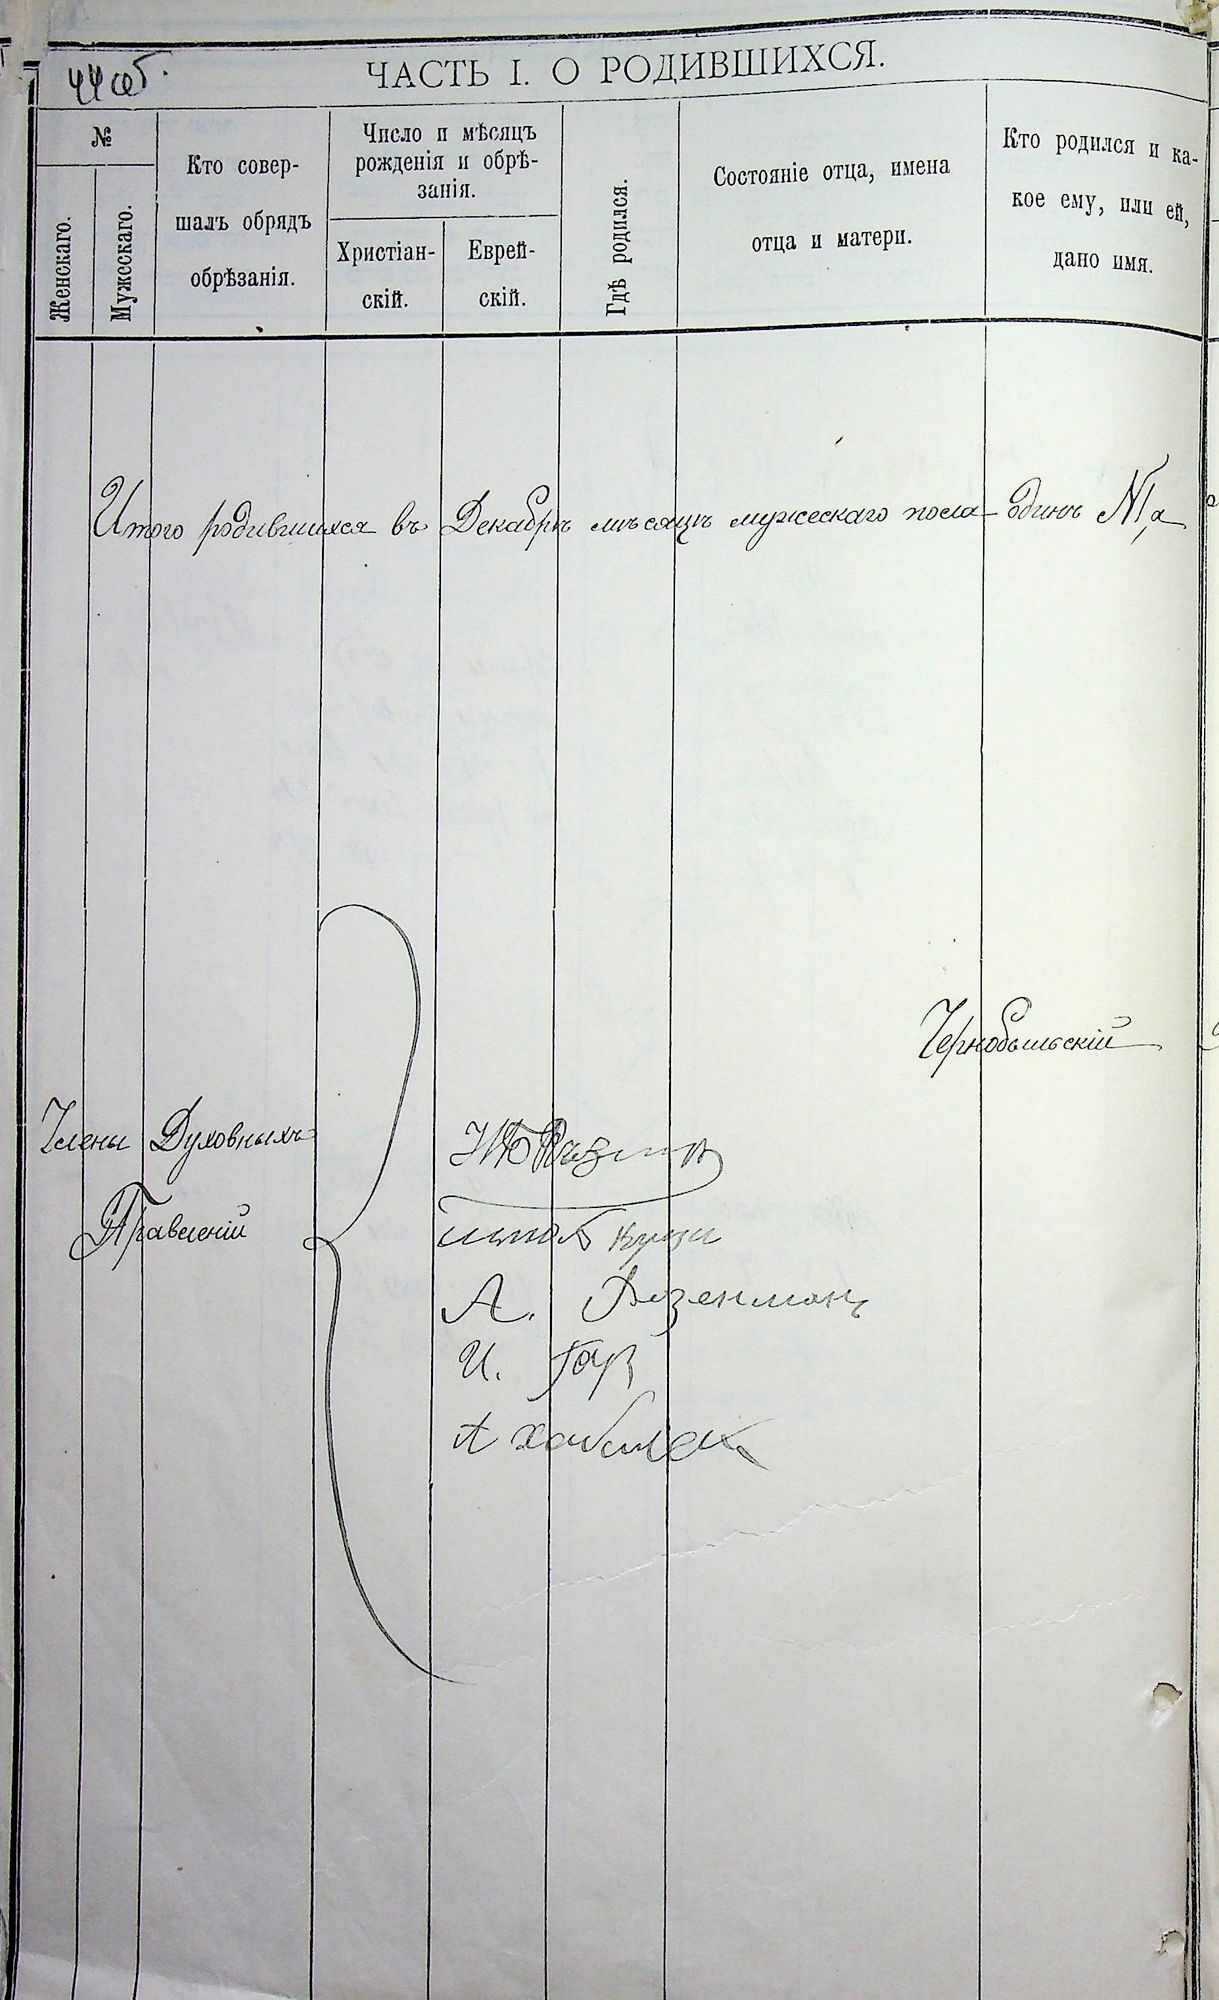 44 об.
ЧАСТЬ I. О РОДИВШИХСЯ.
№
Женскаго.
Мужескаго.
Кто совер-
шалъ обрядъ
обрѣзанія.
Число и мѣсяцъ
рожденія и обрѣ-
занія.
Христіан-
скій.
Еврей-
скій.
Гдѣ родился.
Состояніе отца, имена
отца и матери.
Кто родился и ка-
кое ему, или ей,
дано имя.
Итого родившихся въ Декабрѣ мѣсяцѣ мужескаго пола одинъ
Чернобыльскій
Члены Духовныхъ
Правленій
А. Розенманъ
И.
А